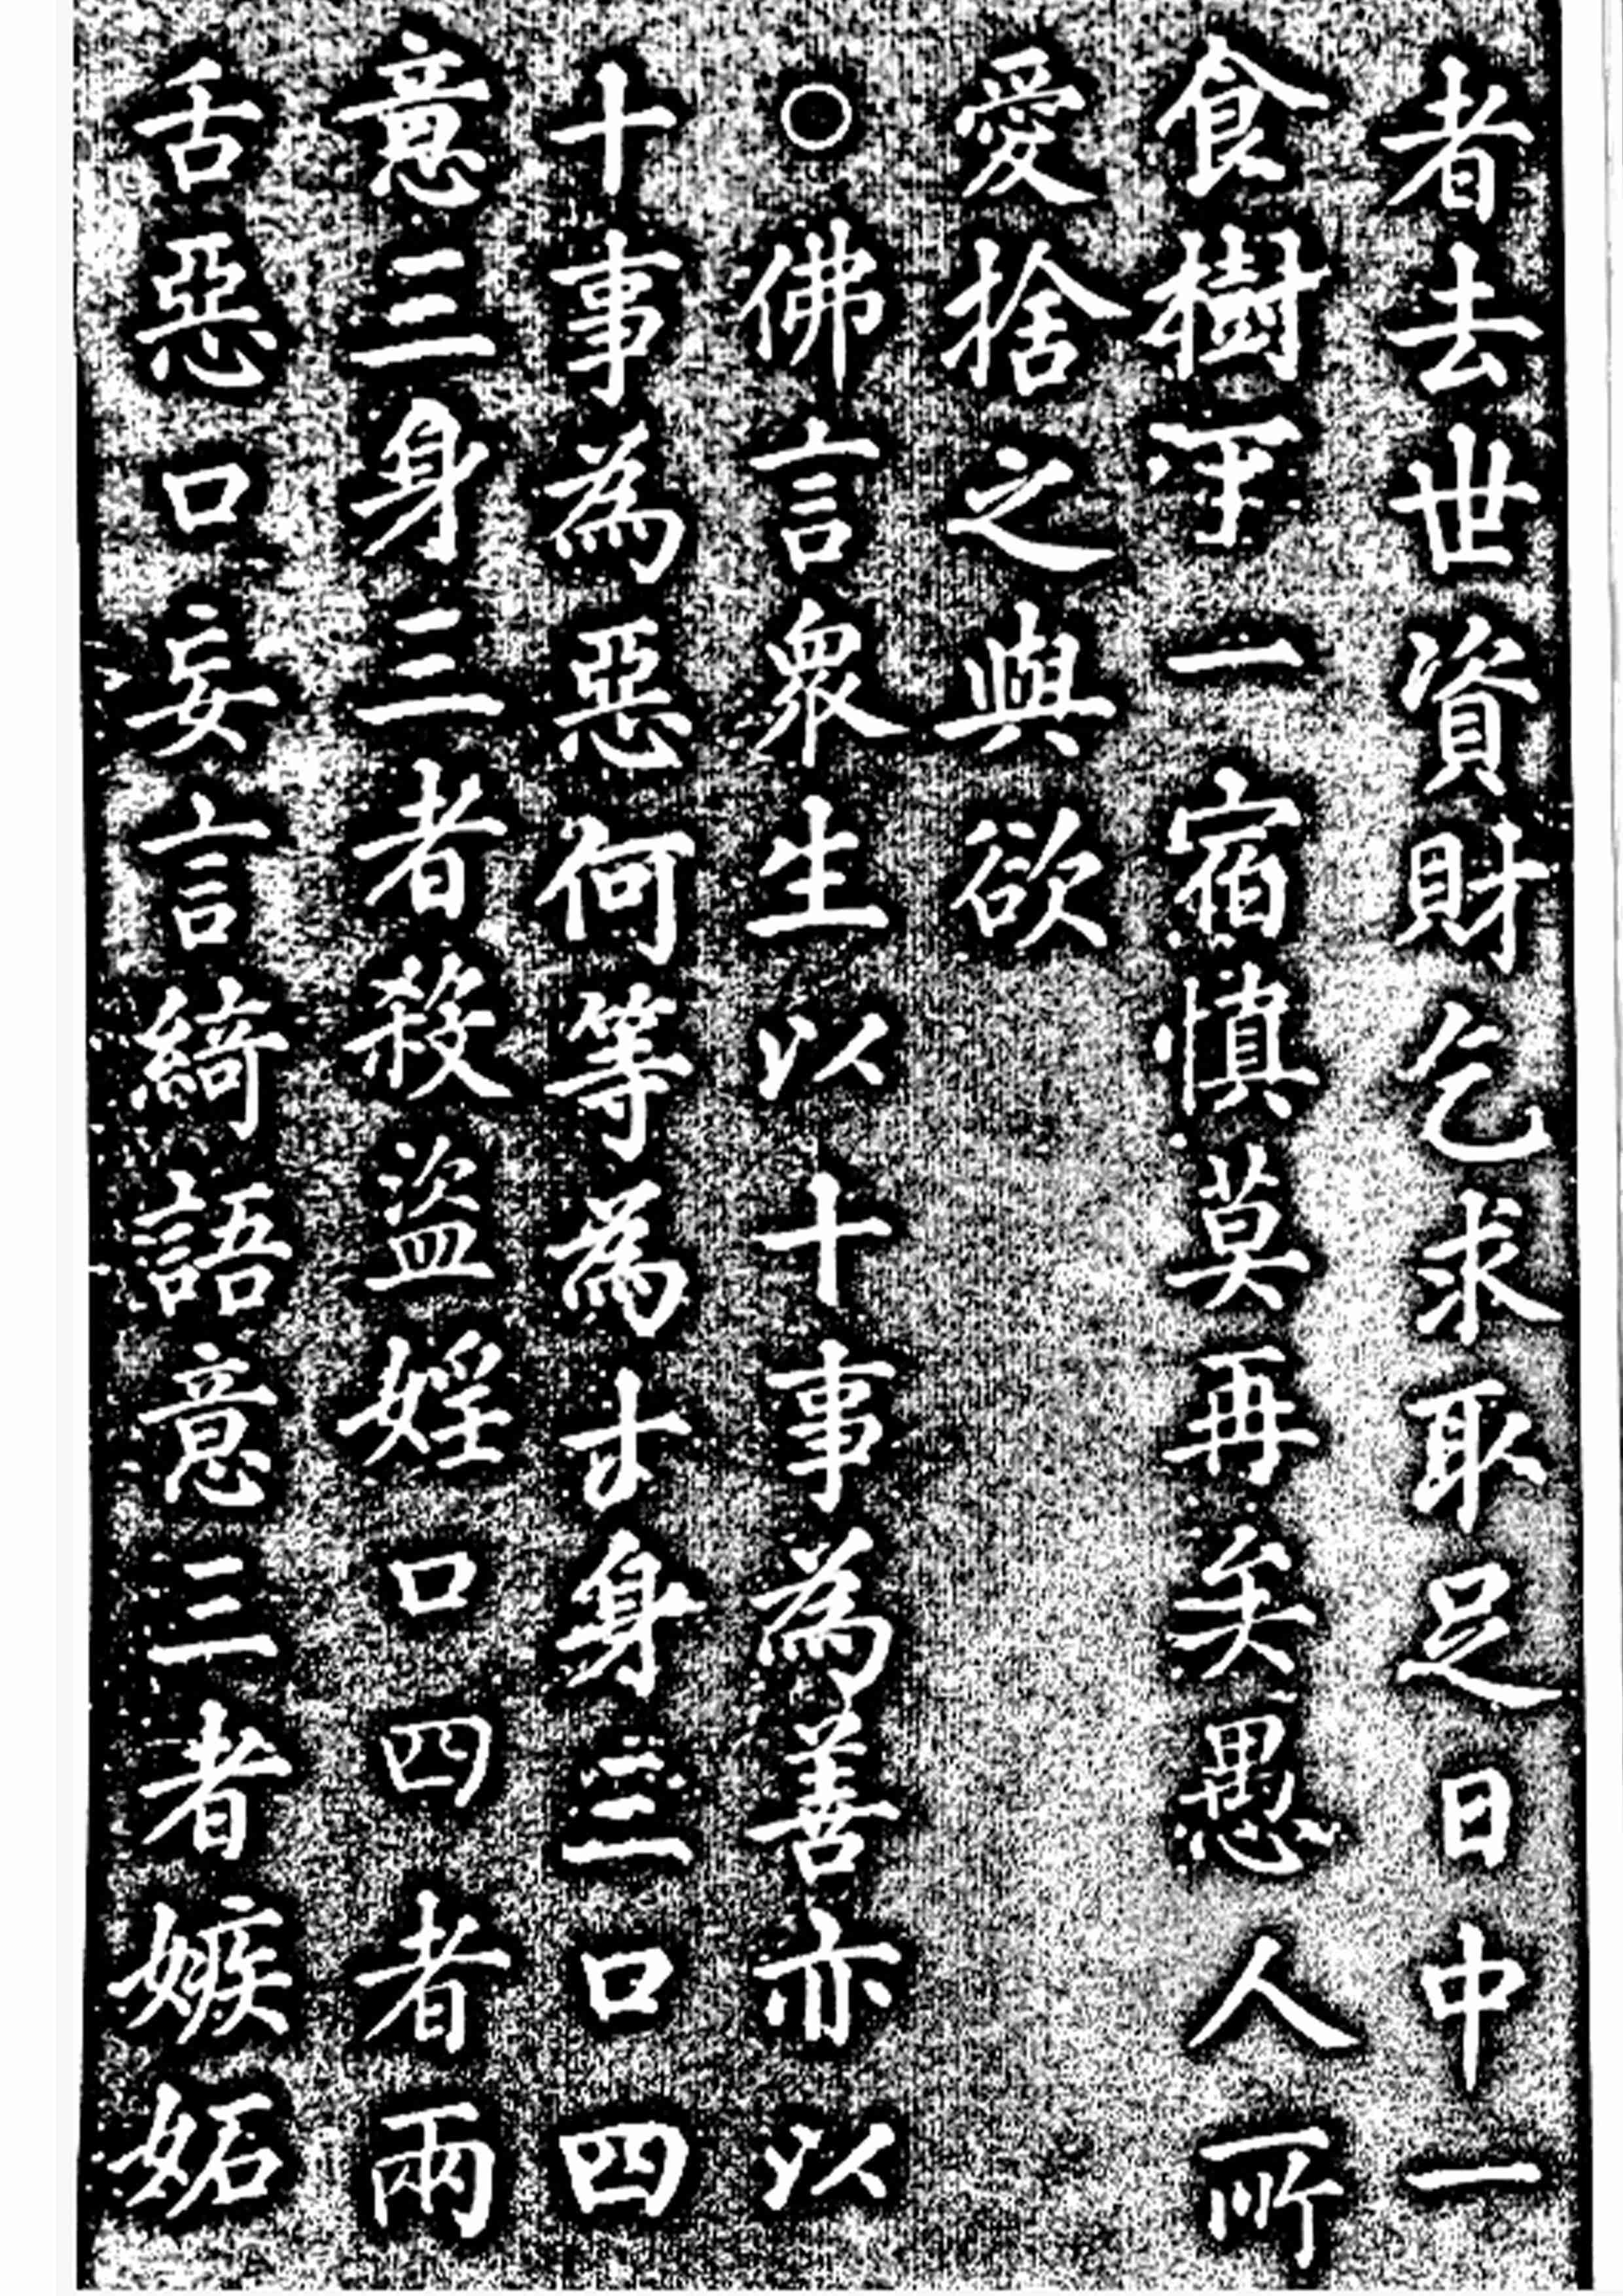 者去世資財乞求取足日中一
食樹下一宿慎莫再矣愚人所
愛捨之與欲
○佛言衆生以十事為善亦以
十事為惡何等為十身三口四
意三身三者殺盜婬口四者兩
舌惡口妄言綺語意三者嫉妬